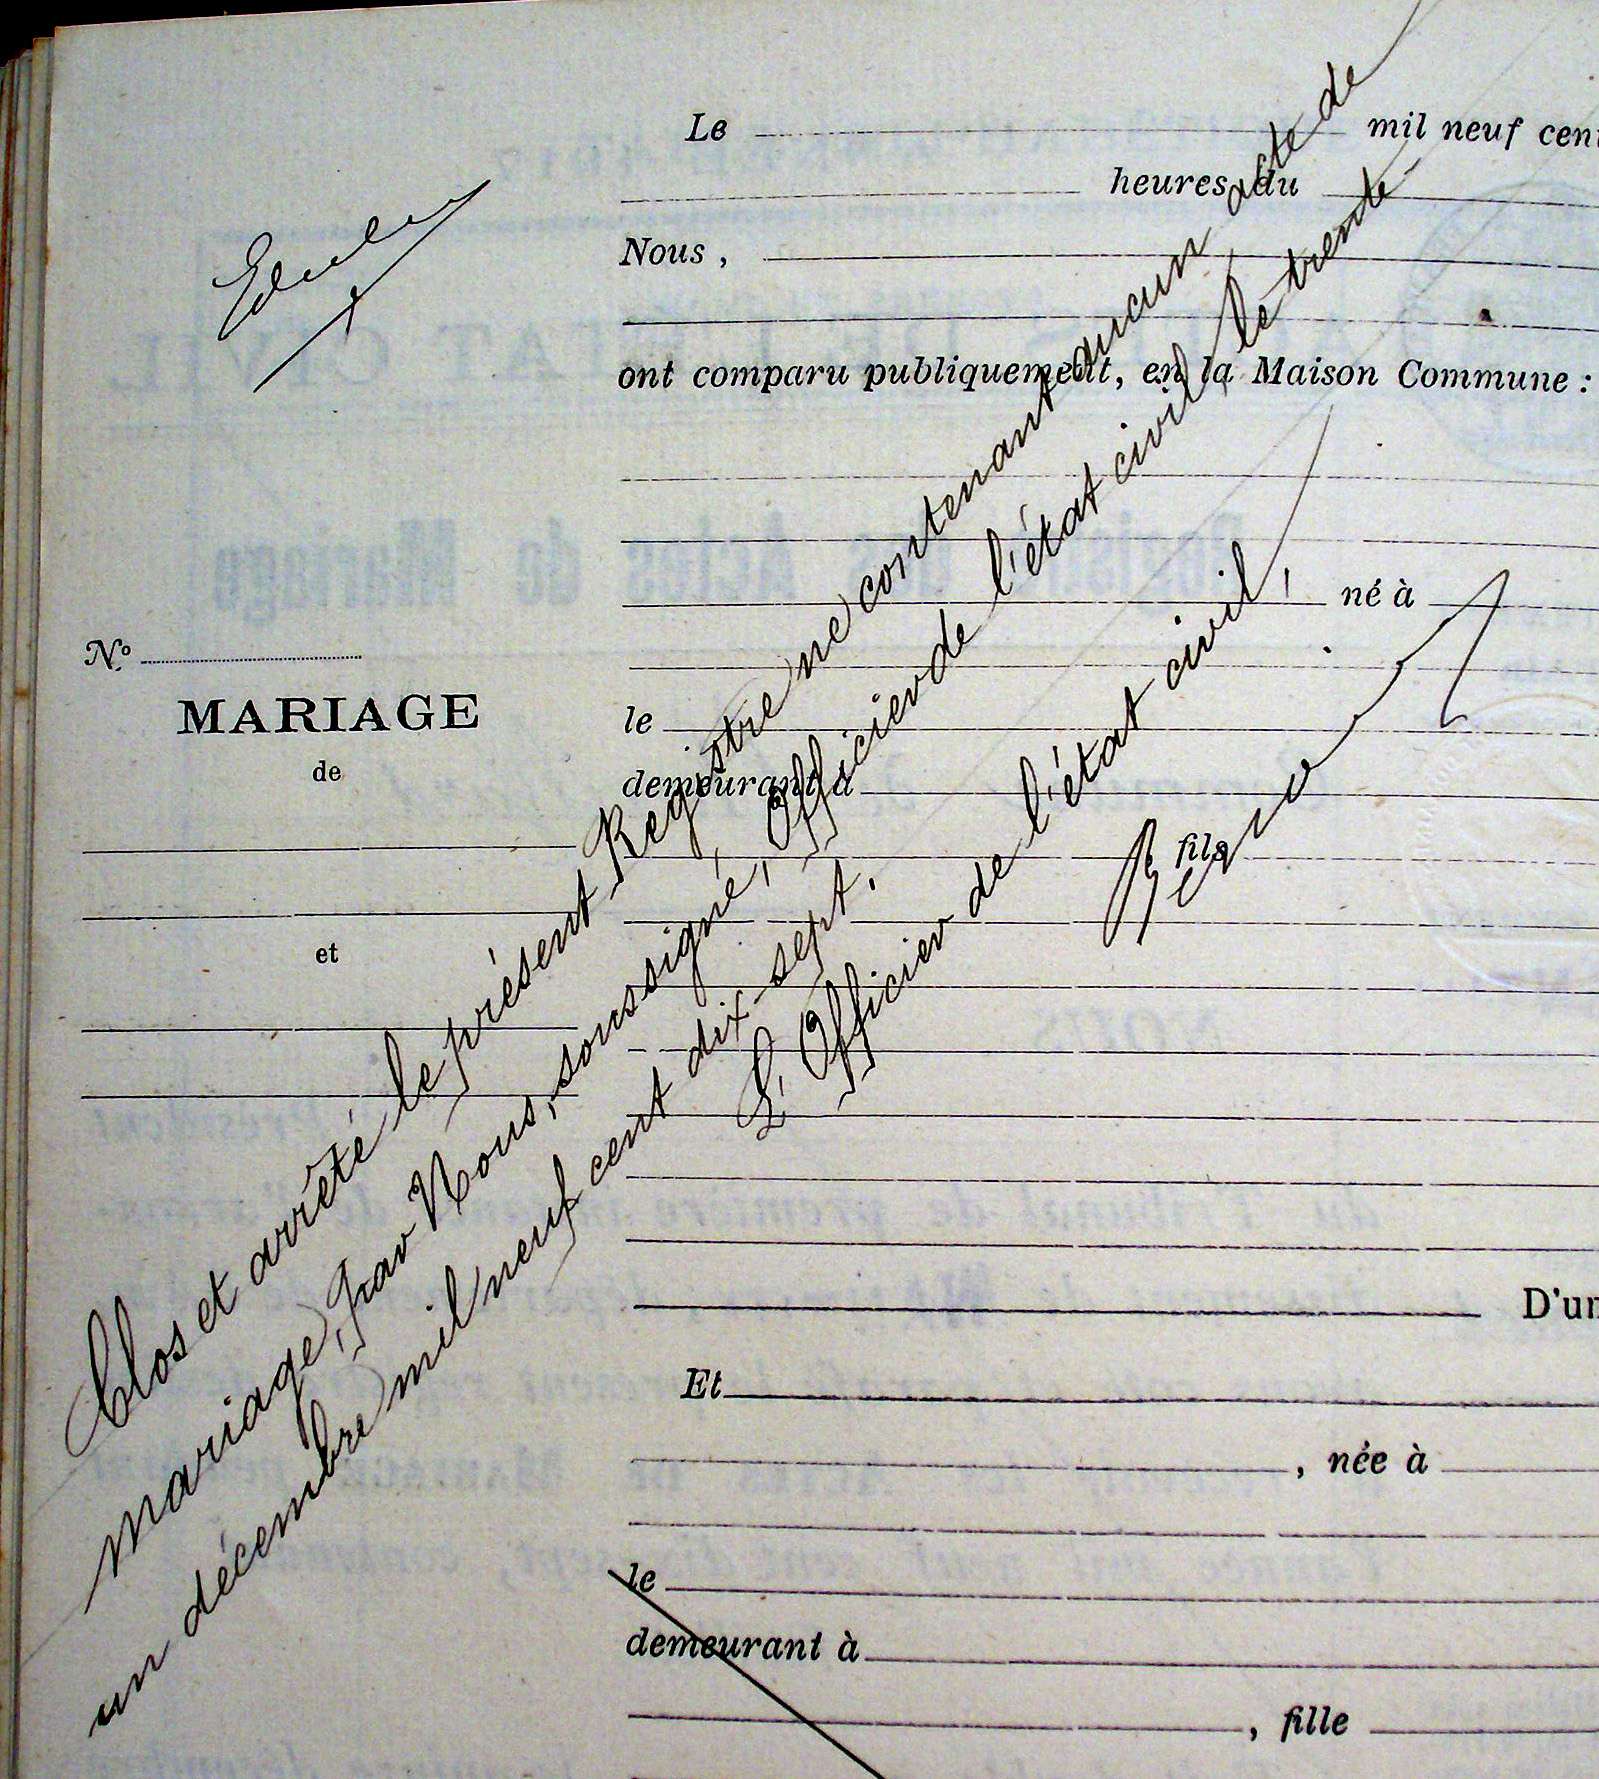 Le mil neuf cent
heures du
Nous ,
ont comparu publiquement, en la Maison Commune :
né à
N°
MARIAGE
le
de
demeurant à
fils
et
D'un
Et
, née à
le
demeurant à
, fille
Clos et arrêté le présent Registre ne contenant aucun acte de
mariage, par Nous, soussigné, Officier de l'état civil, le trente
un décembre mil neuf cent dix-sept.
L'Officier de l'état civil,